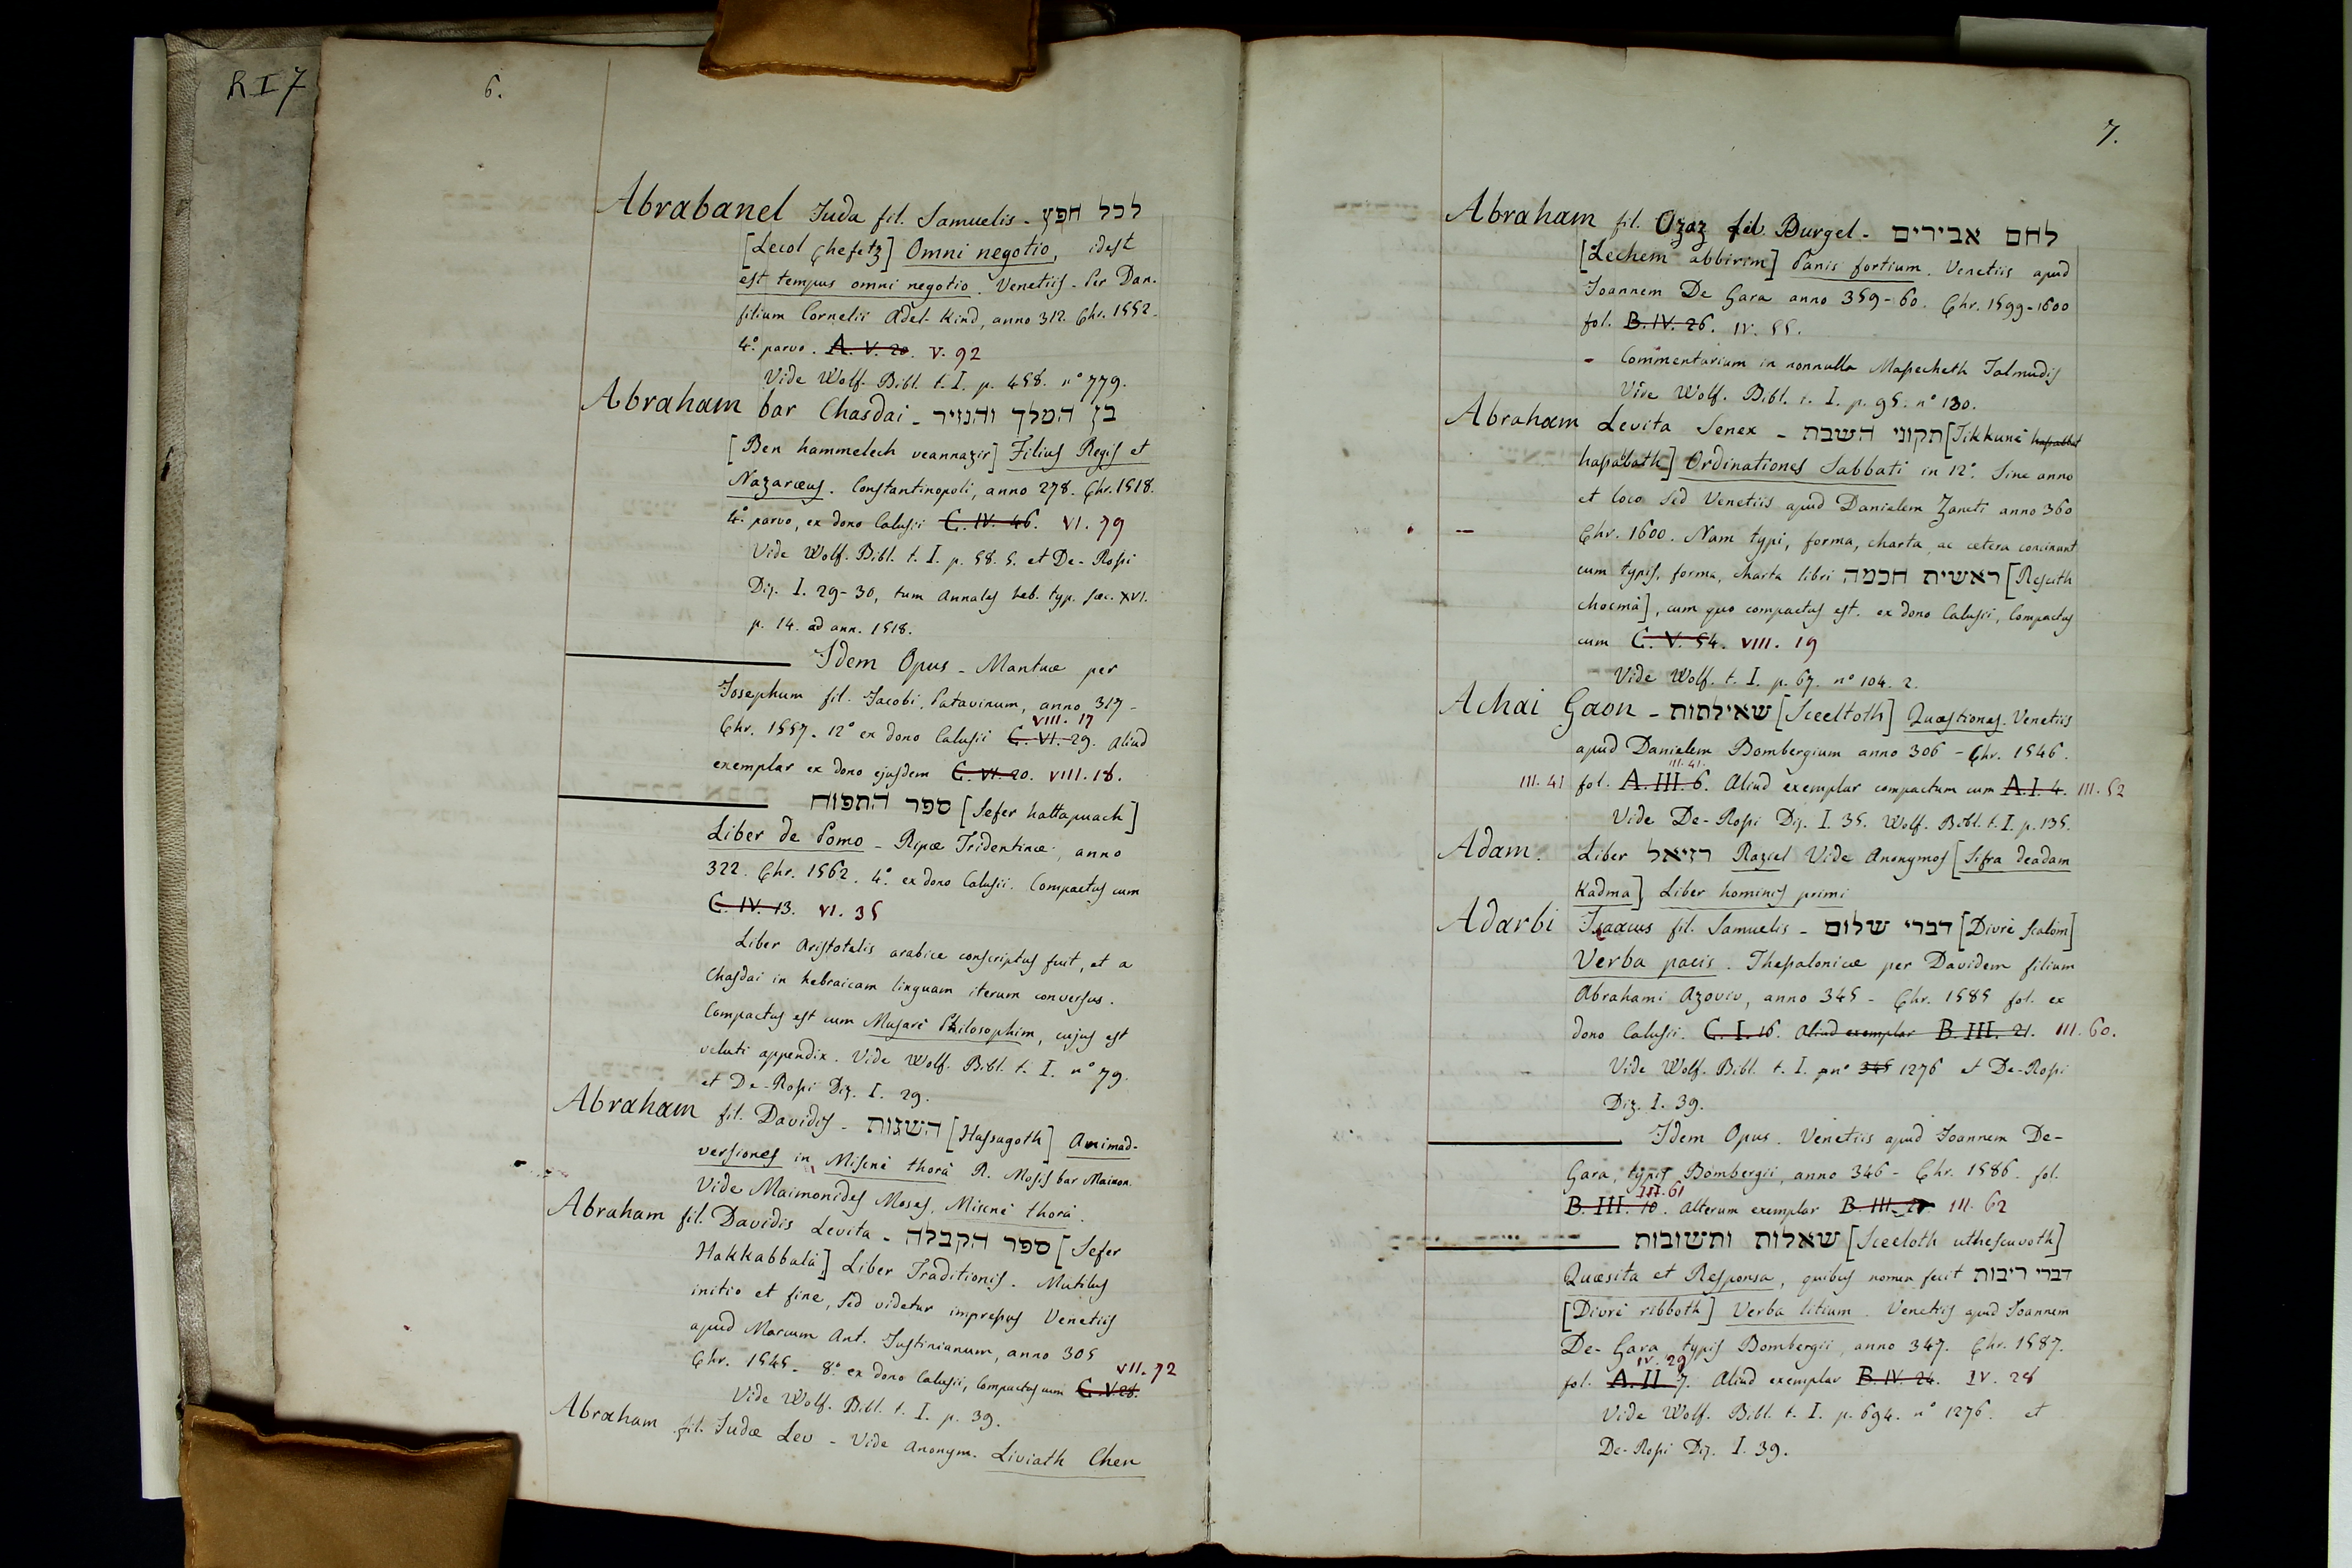 R I 7
6.
Abrabanel Juda fil. Samuelis - לכל חפץ
[Lecol Chefetz] Omni negotio, idest
est tempus omni negotio. Venetiis - Per Dan.
filium Cornelii Adel-Kind, anno 312. Chr. 1552.
4.º parvo. A. V. 20. V. 92
Vide Wolf. Bibl. t. I. p. 458. nº 779.
Abraham bar Chasdai - בן המלך והנזיר
[Ben hammelech veannazir] Filius Regis et
Nazaræus. Constantinopoli, anno 278. Chr. 1518.
4.º parvo, ex dono Calusii C. IV. 46. VI. 79
Vide Wolf. Bibl. t. I. p. 58. 5. et De-Rossi
Diz. I. 29-30, tum Annales heb. typ. sæc. XVI.
p. 14. ad ann. 1518.
Idem Opus - Mantuæ per
Josephum fil. Jacobi, Patavinum, anno 317 -
VIII. 17
Chr. 1557. 12º ex dono Calusii C. VI. 29. Aliud
exemplar ex dono ejusdem C. VI. 20. VIII. 18.
ספר התפוח [Sefer hattapuach]
Liber de Pomo - Ripæ Tridentinæ, anno
322. Chr. 1562. 4.º ex dono Calusii. Compactus cum
C. IV. 13. VI. 35
Liber Aristotelis arabice conscriptus fuit, et a
Chasdai in hebraicam linguam iterum conversus.
Compactus est cum Musarè Philosophim, cujus est
veluti appendix. Vide Wolf. Bibl. t. I. nº 79.
et De-Rossi Diz. I. 29.
Abraham fil. Davidis - השגות [Hassagoth] Animad-
versiones in Miscnè thorà R. Mosis bar Maimon.
Vide Maimonides Moses, Miscnè thorà.
Abraham fil. Davidis Levita - ספר הקבלה [Sefer
Hakkabbalà] Liber Traditionis. Mutilus
initio et fine, sed videtur impressus Venetiis
apud Marcum Ant. Justinianum, anno 305
VII. 72
Chr. 1545 - 8.º ex dono Calusii, Compactus cum C. V. 28.
Vide Wolf. Bibl. t. I. p. 39.
Abraham fil. Judæ Lev - Vide Anonym. Liviath Chen
7.
Abraham fil. Ozaz fil. Burgel - לחם אבירים
[Lechem abbirim] Panis fortium. Venetiis apud
Joannem De Gara anno 359-60. Chr. 1599-1600
fol. B. IV. 26. IV. 55.
- Commentarium in nonnulla Massecheth Talmudis
Vide Wolf. Bibl. t. I. p. 95. nº 130.
Abraham Levita Senex - תקוני השבת [Tikkunè hasabbat
hasabath] Ordinationes Sabbati in 12º. Sine anno
et loco sed Venetiis apud Danielem Zaneti anno 360
Chr. 1600. Nam typi, forma, charta, ac cætera concinunt
cum typis, forma, charta libri ראשית חכמה [Resith
chocmà], cum quo compactus est. ex dono Calusii, Compactus
cum C. V. 54. VIII. 19
Vide Wolf. t. I. p. 67. nº 104. 2.
Achai Gaon - שאילתות [Sceeltoth] Quæstiones. Venetiis
apud Danielem Bombergium anno 306 - Chr. 1546.
III. 41.
III. 41 fol. A. III. 6. Aliud exemplar compactum cum A. I. 4. III. 52
Vide De-Rossi Diz. I. 35. Wolf. Bibl. t. I. p. 135.
Adam. Liber רזיאל Raziel Vide Anonymos [Sifra deadam
Kadma] Liber hominis primi
Adarbi Isaacus fil. Samuelis - דברי שלום [Divrè scalòm]
Verba pacis. Thessalonicæ per Davidem filium
Abrahami Azoviv, anno 345 - Chr. 1585 fol. ex
dono Calusii. C. I. 16. Aliud exemplar B. III. 21. III. 60.
Vide Wolf. Bibl. t. I. p nº 345 1276 et De-Rossi
Diz. I. 39.
Idem Opus. Venetiis apud Joannem De-
Gara, typis Bombergii, anno 346 - Chr. 1586. fol.
III. 61
B. III. 10. Alterum exemplar B. III. III. 62
שאלות ותשובות [Sceeloth uthescuvoth]
Quæsita et Responsa, quibus nomen fecit דברי ריבות
[Divrè ribboth] Verba litium. Venetiis apud Joannem
De-Gara typis Bombergii, anno 347. Chr. 1587.
IV. 29
fol. A. II 7. Aliud exemplar B. IV. 24. IV. 28
Vide Wolf. Bibl. t. I. p. 694. nº 1276. et
De-Rossi Diz. I. 39.